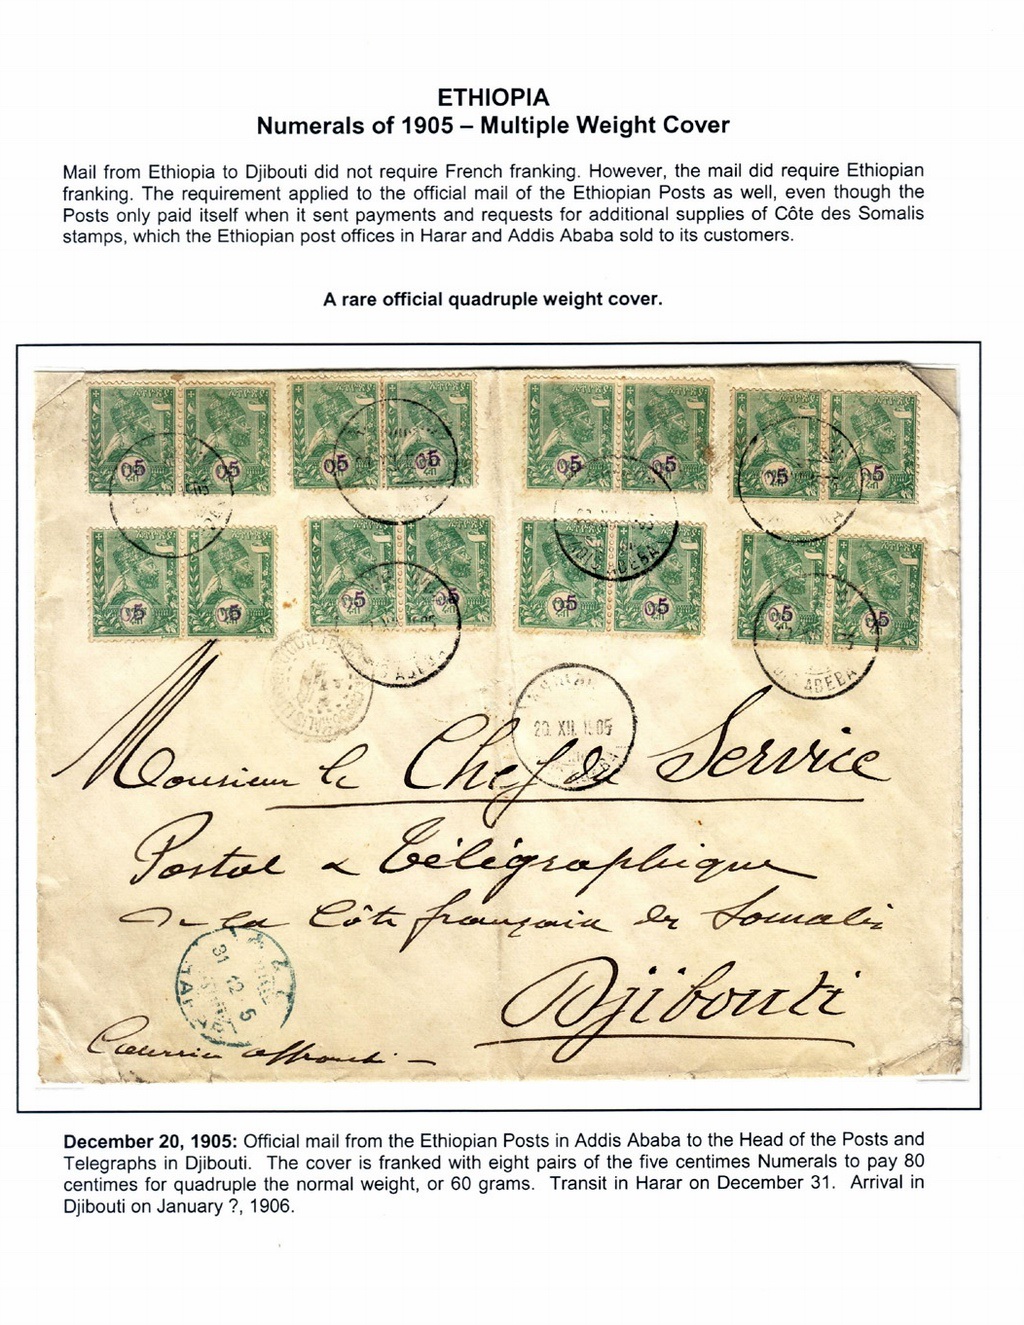 ETHIOPIA
Numerals of 1905 – Multiple Weight Cover
Mail from Ethiopia to Djibouti did not require French franking. However, the mail did require Ethiopian
franking. The requirement applied to the official mail of the Ethiopian Posts as well, even though the
Posts only paid itself when it sent payments and requests for additional supplies of Côte des Somalis
stamps, which the Ethiopian post offices in Harar and Addis Ababa sold to its customers.
A rare official quadruple weight cover.
05 05 05 05 05 05 05 05
05 05 05 05 05 05 05 05
ADIS ABEBA
20 XII 1905
Monsieur le Chef du Service
Postal & Télégraphique
de la Côte française des Somalis
Djibouti
31 12 5
Courrier affranchi –
December 20, 1905: Official mail from the Ethiopian Posts in Addis Ababa to the Head of the Posts and
Telegraphs in Djibouti. The cover is franked with eight pairs of the five centimes Numerals to pay 80
centimes for quadruple the normal weight, or 60 grams. Transit in Harar on December 31. Arrival in
Djibouti on January ?, 1906.